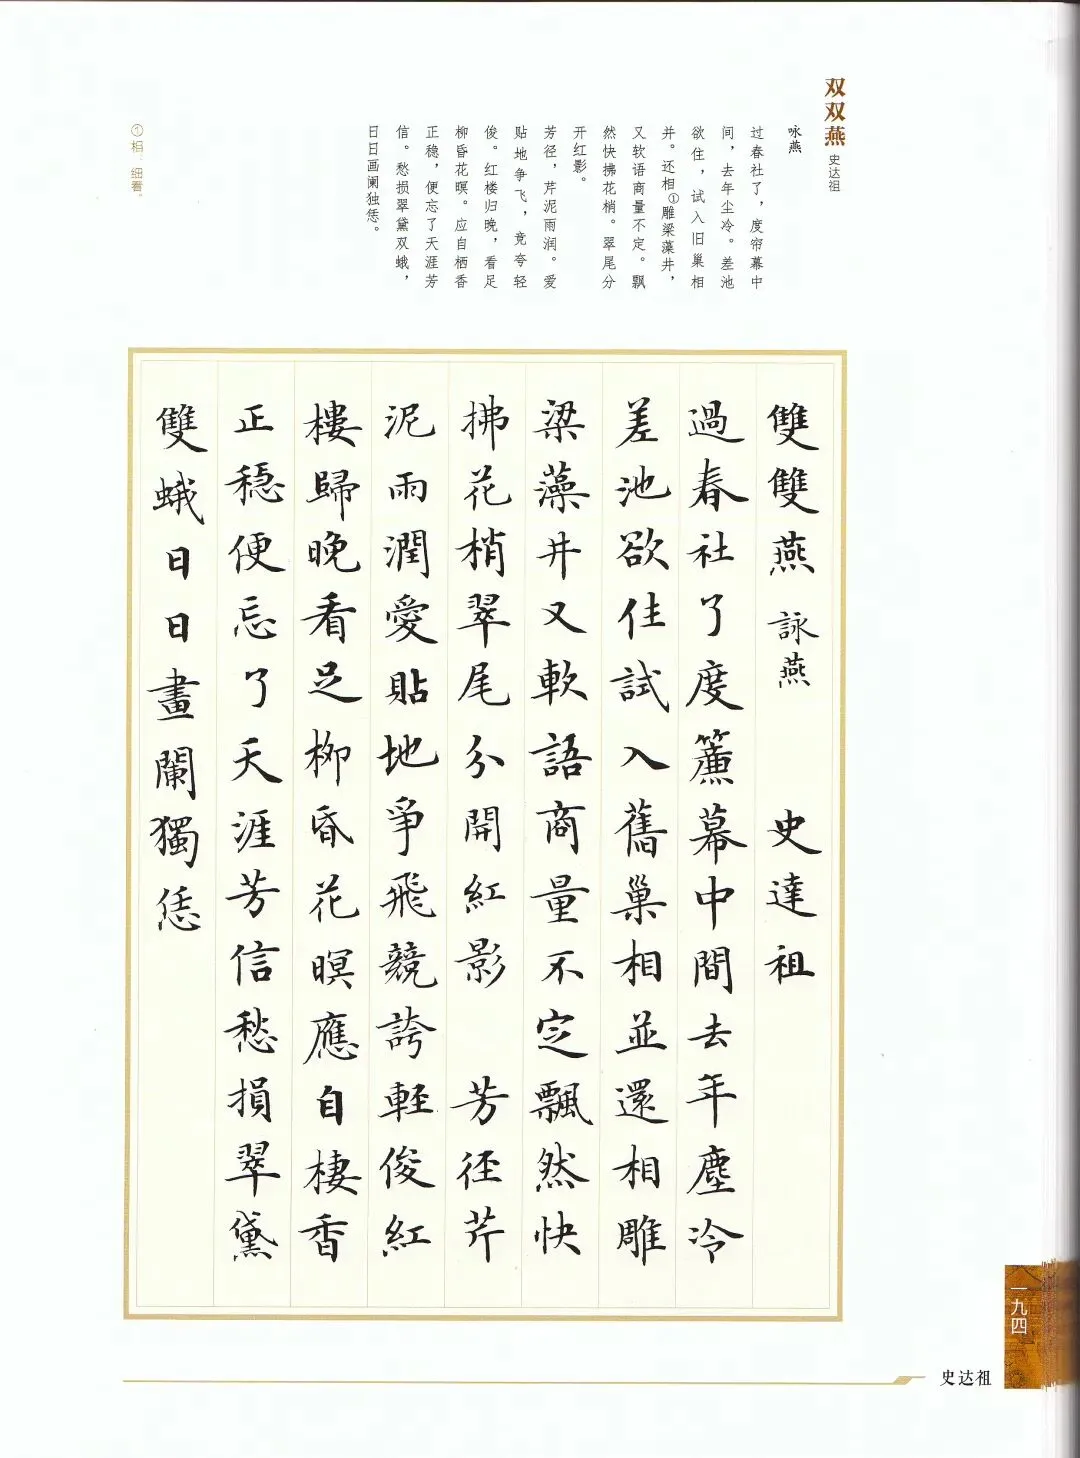 双双燕 史达祖
咏燕
过春社了，度帘幕中
间，去年尘冷。差池
欲住，试入旧巢相
并。还相①雕梁藻井，
又软语商量不定。飘
然快拂花梢。翠尾分
开红影。
芳径，芹泥雨润。爱
贴地争飞，竞夸轻
俊。红楼归晚，看足
柳昏花暝。应自栖香
正稳，便忘了天涯芳
信。愁损翠黛双蛾，
日日画阑独恁。
①相：细看。
雙雙燕 詠燕 史達祖
過春社了度簾幕中間去年塵冷
差池欲住試入舊巢相並還相雕
梁藻井又軟語商量不定飄然快
拂花梢翠尾分開紅影 芳徑芹
泥雨潤愛貼地爭飛競誇輕俊紅
樓歸晚看足柳昏花暝應自棲香
正穩便忘了天涯芳信愁損翠黛
雙蛾日日畫闌獨恁
一九四
史达祖